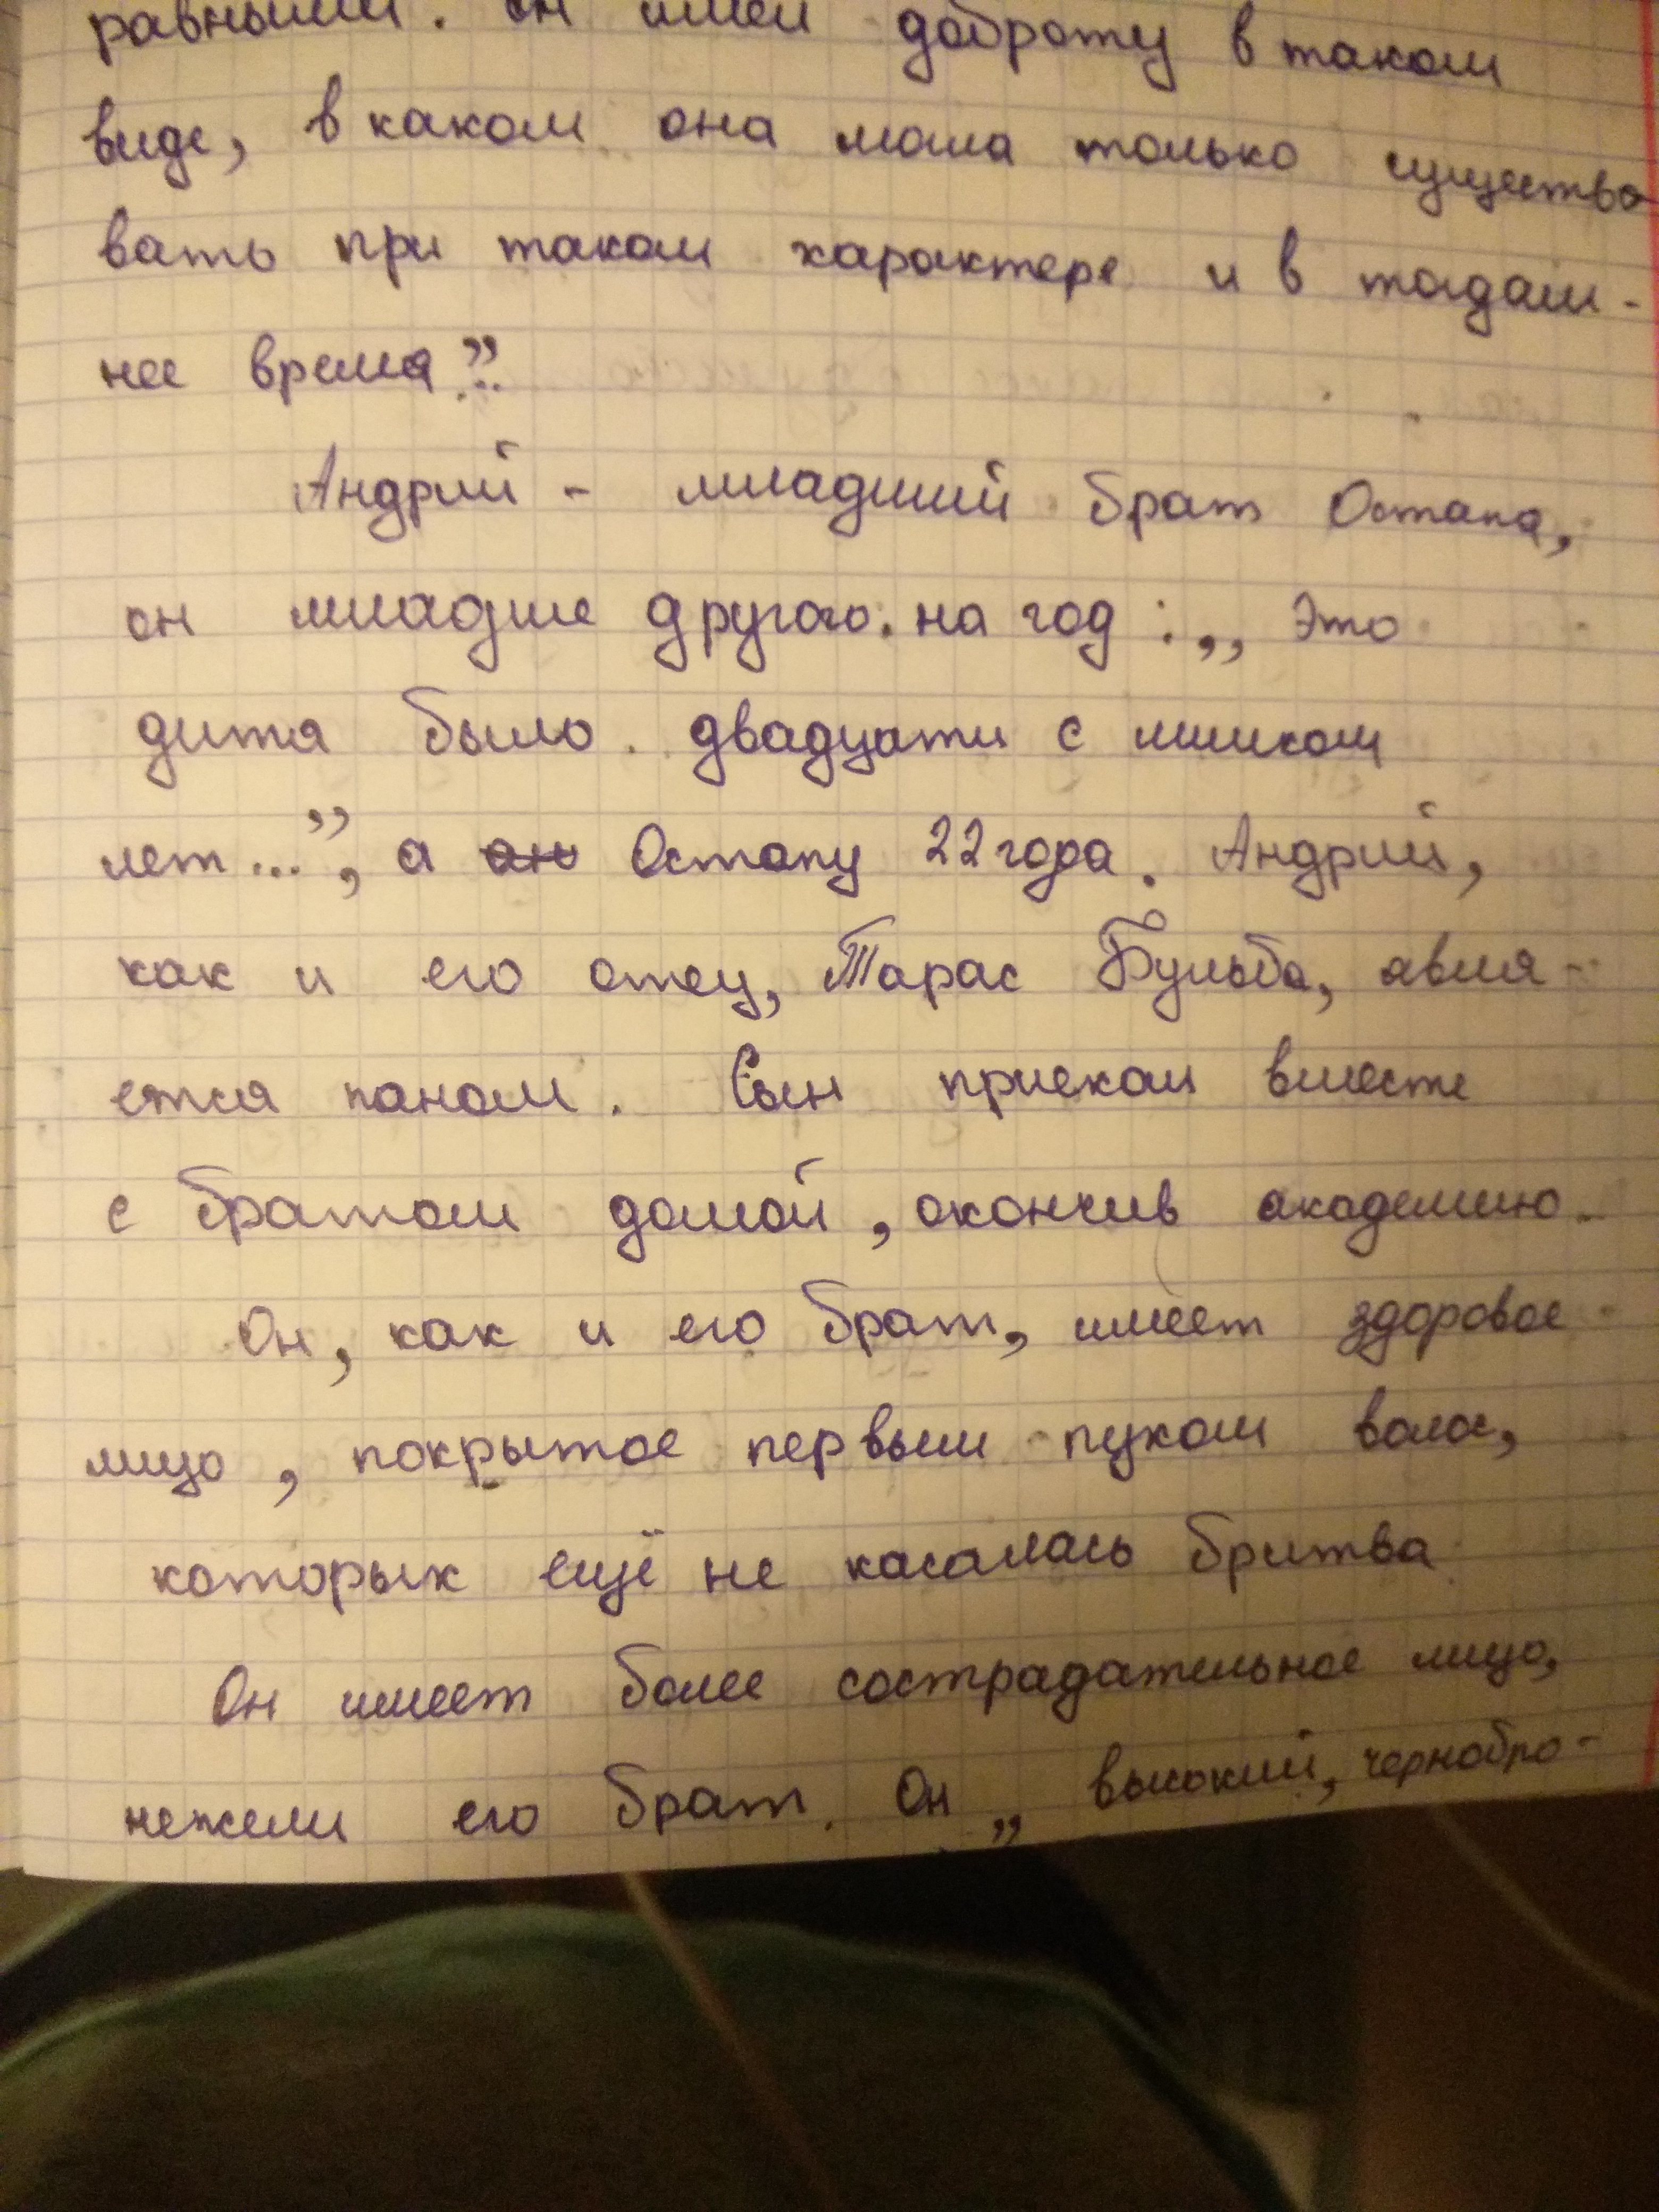 равными. Он имел доброту в таком
виде, в каком она могла только существо
вать при таком характере и в тогдаш-
нее время".
Андрий - младший брат Остапа,
он младше другого на год: „Это
дитя было двадцати с лишком
лет...", а он Остапу 22 года. Андрий,
как и его отец, Тарас Бульба, явля-
ется паном. Сын приехал вместе
с братом домой, окончив академию.
Он, как и его брат, имеет здоровое
лицо, покрытое первым пухом волос,
которых ещё не касалась бритва
Он имеет более сострадательное лицо,
нежели его брат. Он „высокий, чернобро-